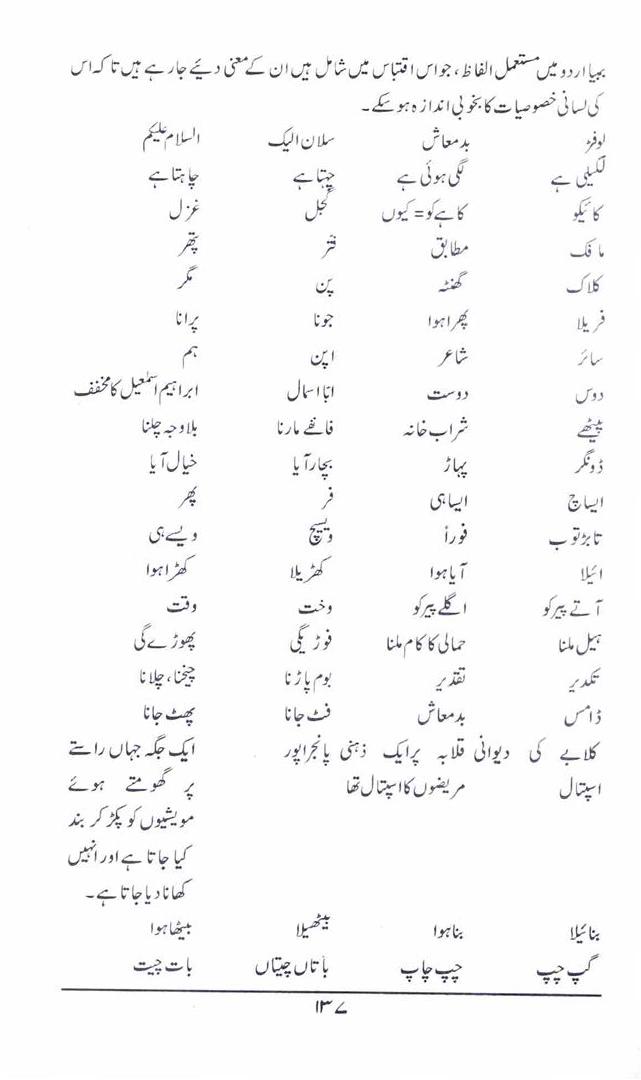 بمبیا اردو میں مستعمل الفاظ، جو اس اقتباس میں شامل ہیں ان کے معنی دئیے جارہے ہیں تاکہ اس
کی لسانی خصوصیات کا بخوبی اندازہ ہوسکے۔
لوفڑ بدمعاش سلان الیک السلام علیکم
لگیلی ہے لگی ہوئی ہے چہتا ہے چاہتا ہے
کائیکو کاہے کو = کیوں گجل غزل
مافک مطابق فتر پتھر
کلاک گھنٹہ پن مگر
فریلا پھرا ہوا جونا پرانا
سائر شاعر اپن ہم
دوس دوست ابّا اسمال ابراہیم اسمٰعیل کا مخفف
پیٹھے شراب خانہ فانفے مارنا بلاوجہ چلنا
ڈونگر پہاڑ بچار آیا خیال آیا
ایساچ ایسا ہی فر پھر
تابڑتوب فوراً ویسیچ ویسے ہی
ائیلا آیا ہوا کھڑیلا کھڑا ہوا
آتے پیرکو اگلے پیرکو وخت وقت
ہیل ملنا حمالی کا کام ملنا فوڑیگی پھوڑے گی
تکدیر تقدیر بوم پاڑنا چیخنا، چلانا
ڈامس بدمعاش فٹ جانا پھٹ جانا
کلابے کی دیوانی قلابہ پر ایک ذہنی پانجراپور ایک جگہ جہاں راستے
اسپتال مریضوں کا اسپتال تھا پر گھومتے ہوئے
مویشیوں کو پکڑ کر بند
کیا جاتا ہے اور انہیں
کھانا دیا جاتا ہے۔
بنائیلا بنا ہوا بیٹھیلا بیٹھا ہوا
گپ چپ چپ چاپ باتاں چیتاں بات چیت
۱۳۷